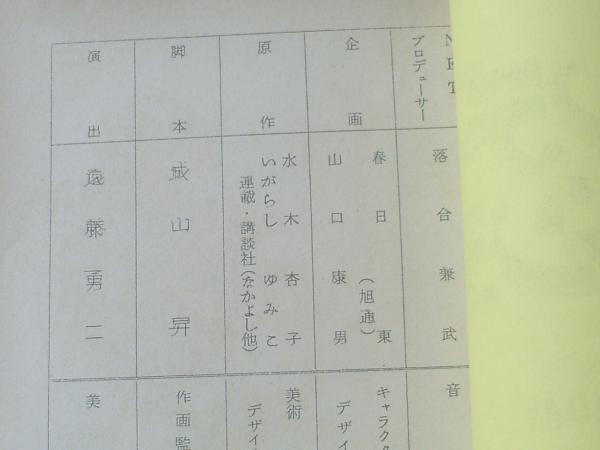 NET
プロデューサー
落合兼武
企画
春日東
(旭通)
山口康男
原作
水木杏子
いがらしゆみこ
連載・講談社(なかよし他)
脚本
城山昇
演出
遠藤勇二
音
キャラクタ
デザイ
美術
デザイ
作画監
美